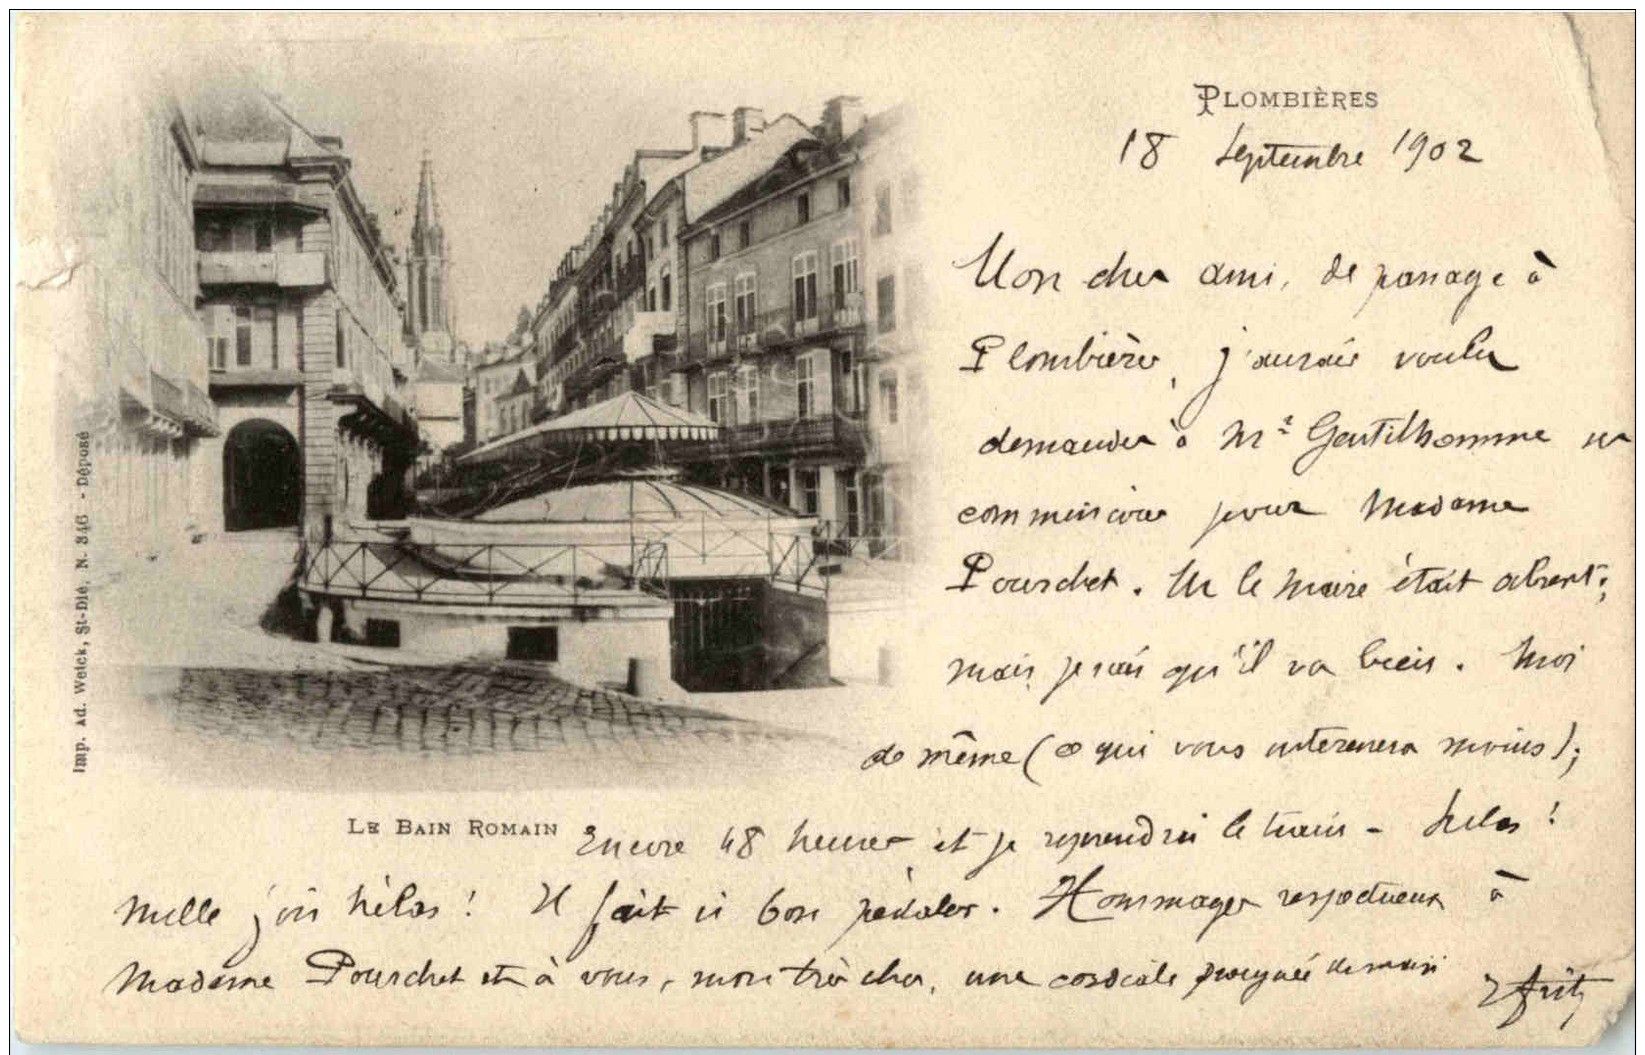 PLOMBIÈRES
18 Septembre 1902
Mon cher ami, de passage à
Plombières, j'aurais voulu
demander à Mr Gentilhomme ses
commissions pour Madame
Pourchet. M le Maire était absent;
mais je sais qu'il va bien. Moi
de même (ce qui vous intéressera moins);
LE BAIN ROMAIN
Encore 48 heures et je reprendrai le train - hélas!
Mille fois hélas! Il fait si bon pédaler. Hommages respectueux à
Madame Pourchet et à vous, mon très cher, une cordiale poignée de main
Imp. Ad. Weick, St-Dié, N. 346 - Déposé